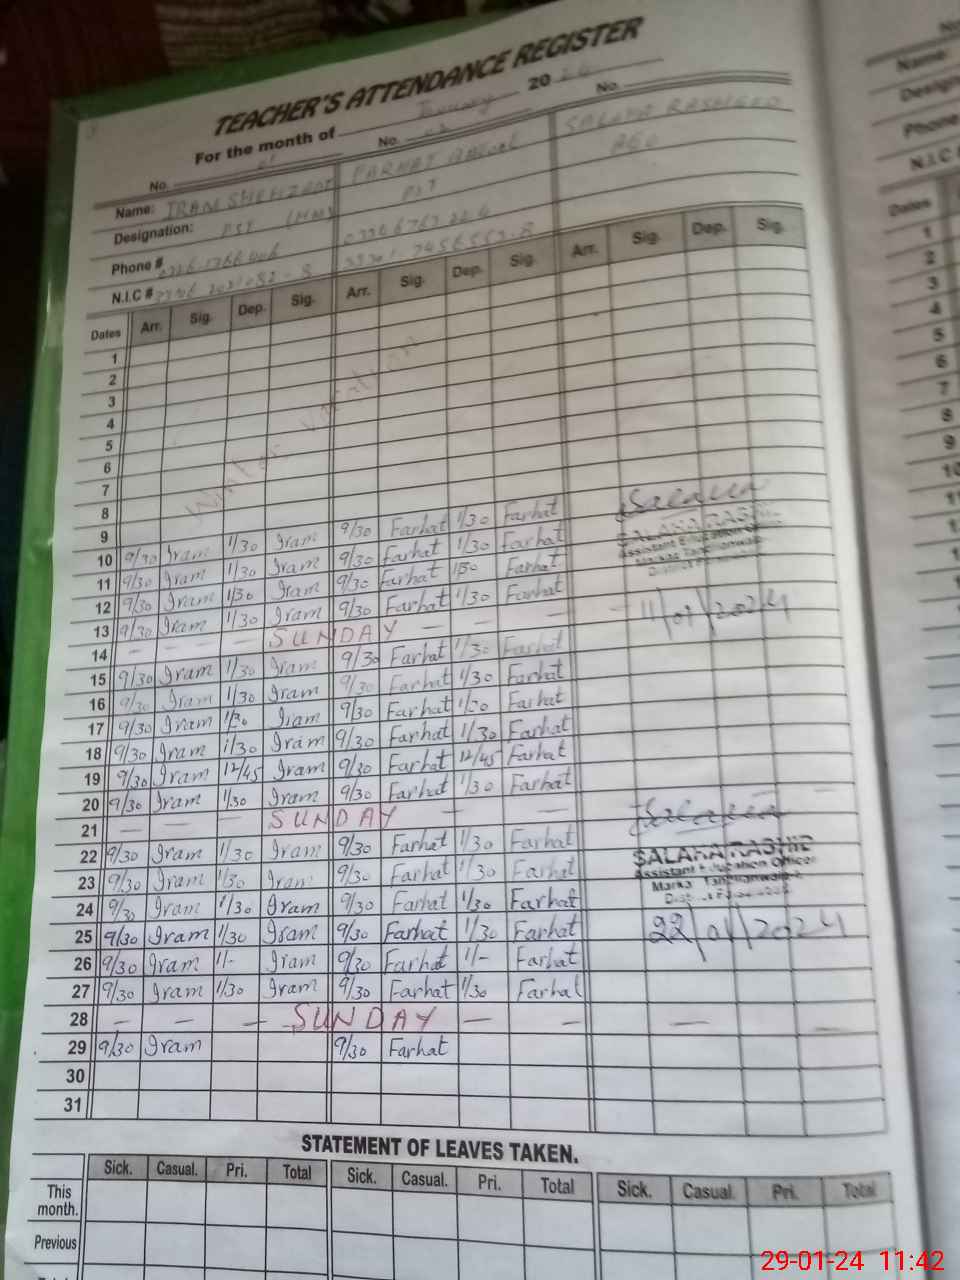 TEACHER'S ATTENDANCE REGISTER
For the month of January 20 24
No. 01 No. 02 No.
Name: IRAM SHEHZADI FARHAT
Designation: PST (HM) PST AEO
Phone #
N.I.C #
Dates Arr. Sig. Dep. Sig. Arr. Sig. Dep. Sig. Arr. Sig. Dep. Sig.
1
2
3
4
5
6
7
8
Winter Vacation
9
10 9/30 Iram 1/30 Iram 9/30 Farhat 1/30 Farhat
11 9/30 Iram 1/30 Iram 9/30 Farhat 1/30 Farhat
12 9/30 Iram 1/30 Iram 9/30 Farhat Farhat
13 9/30 Iram 1/30 Iram 9/30 Farhat 1/30 Farhat
14 — — — SUNDAY — — —
15 9/30 Iram 1/30 Iram 9/30 Farhat 1/30 Farhat
16 9/30 Iram 1/30 Iram 9/30 Farhat 1/30 Farhat
17 9/30 Iram 1/30 Iram 9/30 Farhat 1/30 Farhat
18 9/30 Iram 1/30 Iram 9/30 Farhat 1/30 Farhat
19 9/30 Iram 12/45 Iram 9/30 Farhat 12/45 Farhat
20 9/30 Iram 1/30 Iram 9/30 Farhat 1/30 Farhat
21 — — — SUNDAY — —
22 9/30 Iram 1/30 Iram 9/30 Farhat 1/30 Farhat
23 9/30 Iram 1/30 Iram 9/30 Farhat 1/30 Farhat
24 9/30 Iram 1/30 Iram 9/30 Farhat 1/30 Farhat
25 9/30 Iram 1/30 Iram 9/30 Farhat 1/30 Farhat
26 9/30 Iram 1/- Iram 9/30 Farhat 1/- Farhat
27 9/30 Iram 1/30 Iram 9/30 Farhat 1/30 Farhat
28 — — — SUNDAY — — — —
29 9/30 Iram 9/30 Farhat
30
31
Assistant Education Officer
11/01/2024
Assistant Education Officer
22/01/2024
STATEMENT OF LEAVES TAKEN.
Sick. Casual. Pri. Total Sick. Casual. Pri. Total Sick. Casual. Pri. Total
This month.
Previous
Name:
Phone #
N.I.C #
Dates
1
2
3
4
5
6
7
8
9
10
29-01-24 11:42